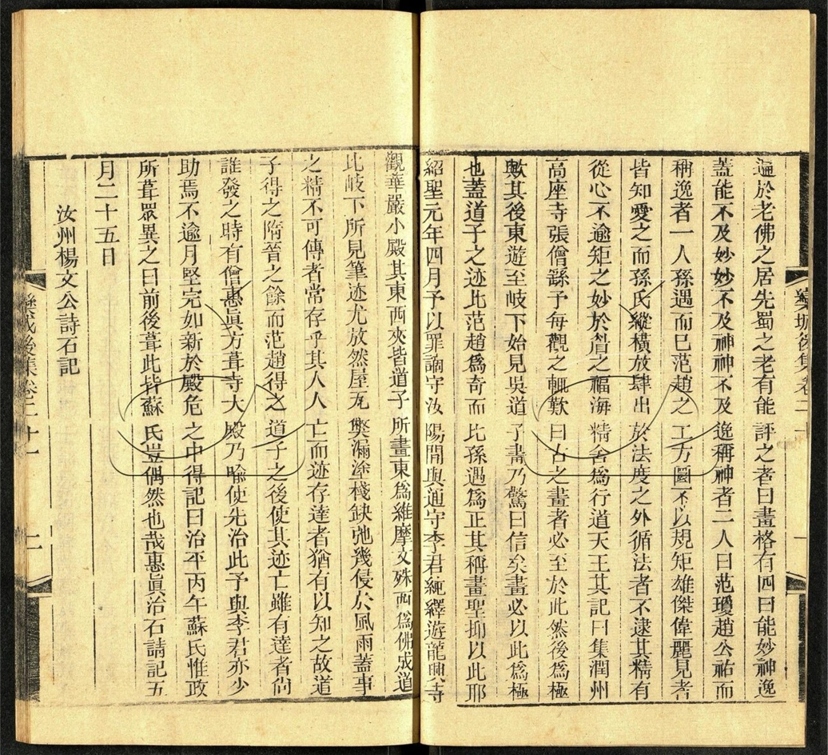 欒城後集卷二十一
一
遍於老佛之居先蜀之老有能評之者曰畫格有四曰能妙神逸
蓋能不及妙妙不及神神不及逸稱神者二人曰范瓊趙公祐而
稱逸者一人孫遇而已范趙之工方圜不以規矩雄傑偉麗見者
皆知愛之而孫氏縱橫放肆出於法度之外循法者不逮其精有
從心不逾矩之妙於眉之福海精舍爲行道天王其記曰集潤州
高座寺張僧繇予每觀之輒歎曰古之畫者必至於此然後爲極
歟其後東遊至岐下始見吳道子畫乃驚曰信矣畫必以此爲極
也蓋道子之迹比范趙爲奇而比孫遇爲正其稱畫聖抑以此耶
紹聖元年四月予以罪謫守汝陽閒與通守李君純繹遊龍興寺
觀華嚴小殿其東西夾皆道子所畫東爲維摩文殊西爲佛成道
比岐下所見筆迹尤放然屋瓦弊漏塗棧缺弛幾侵於風雨蓋事
之精不可傳者常存乎其人人亡而迹存達者猶有以知之故道
子得之隋晉之餘而范趙得之道子之後使其迹亡雖有達者尚
誰發之時有僧惠眞方葺寺大殿乃喻使先治此予與李君亦少
助焉不逾月堅完如新於殿危之中得記曰治平丙午蘇氏惟政
所葺眾異之曰前後葺此皆蘇氏豈偶然也哉惠眞治石請記五
月二十五日
汝州楊文公詩石記
欒城後集卷二十一
二